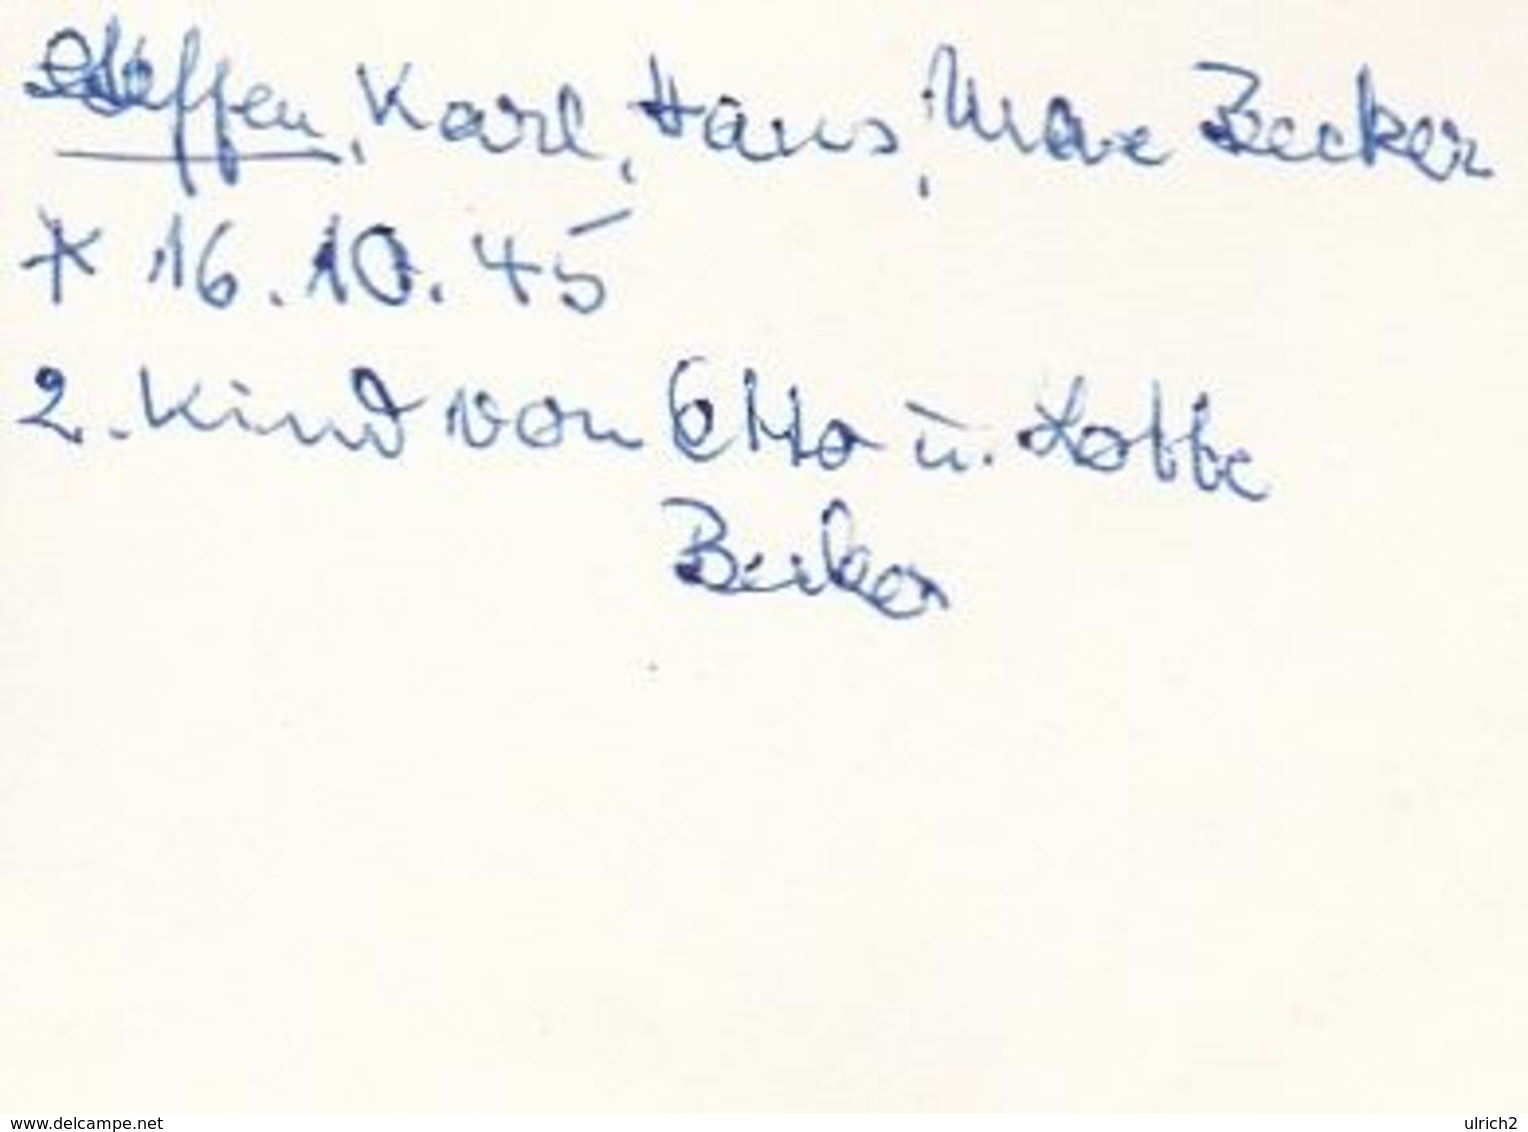 Steffen, Karl, Hans, Max Becker
* 16.10.45
2. Kind von Otto u. Lotte
Becker
www.delcampe.net
ulrich2